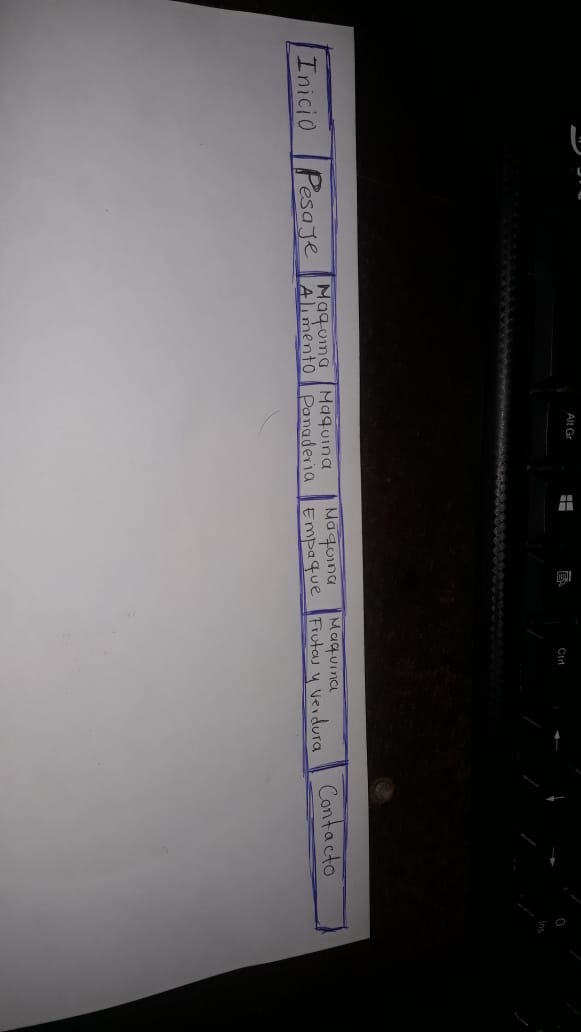 Alt Gr
Ctrl
0
Ins
Inicio
Pesaje
Maquina
Alimento
Maquina
Panaderia
Maquina
Empaque
Maquina
Frutas y Verdura
Contacto